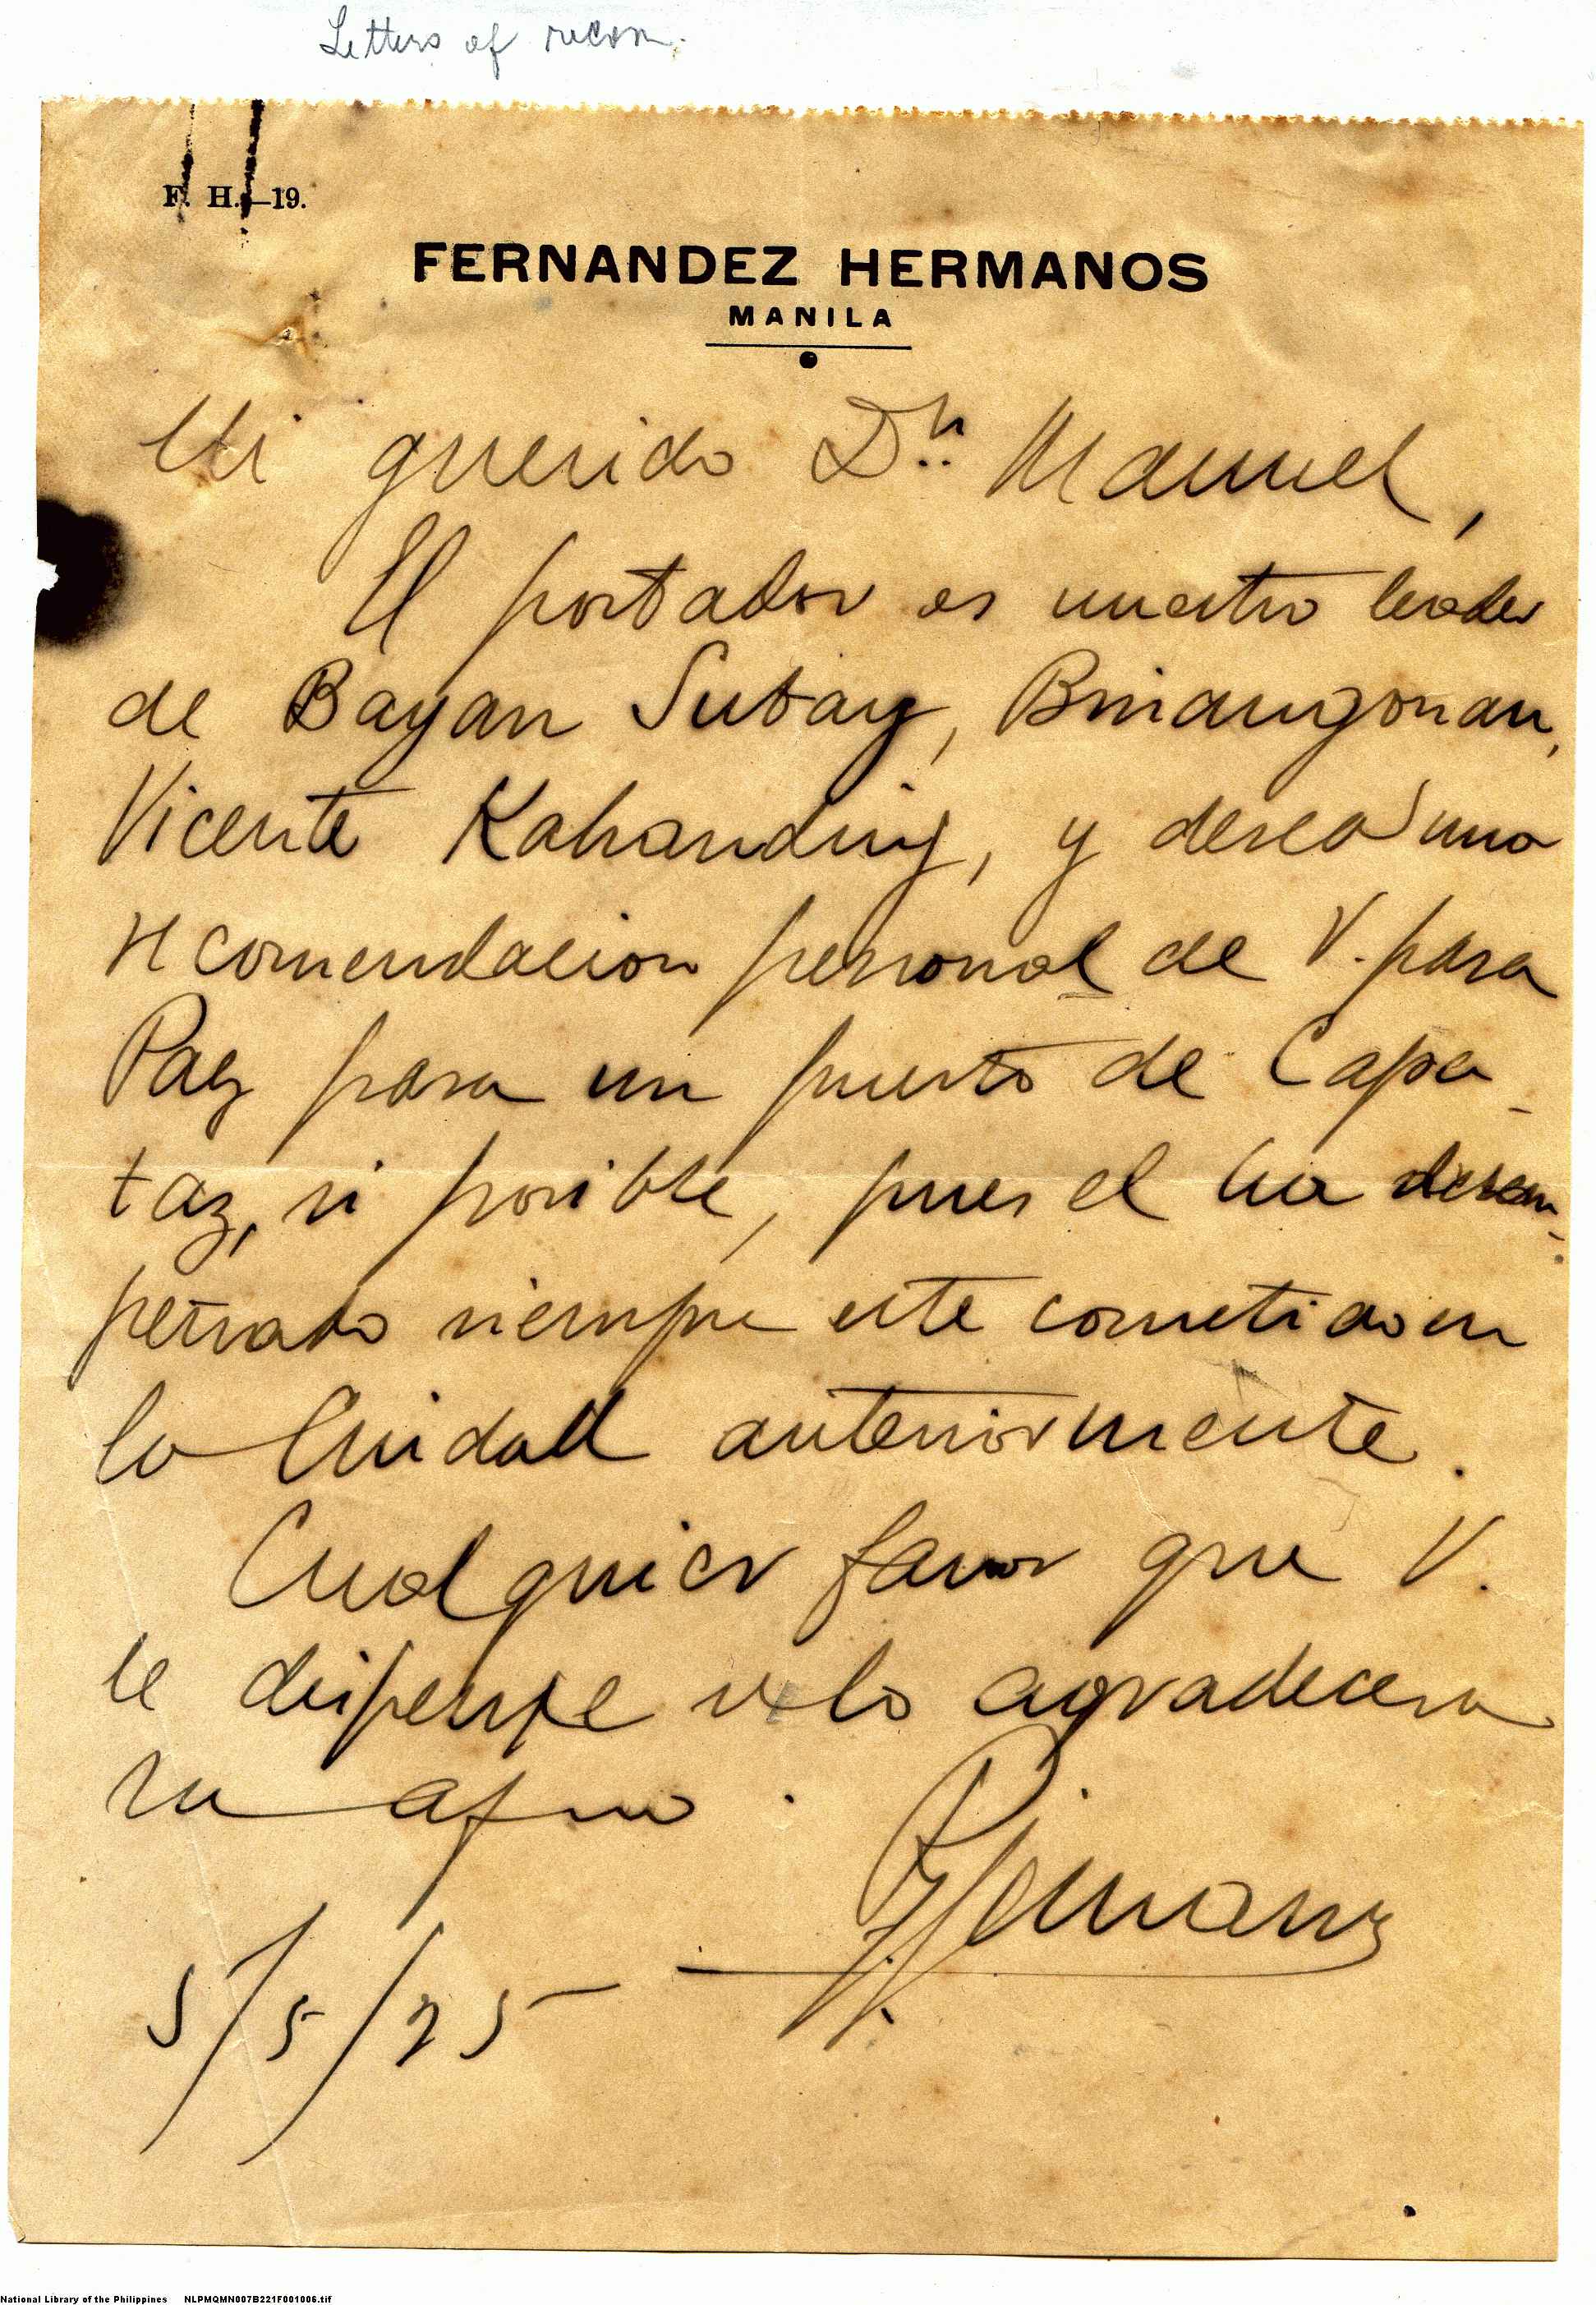 Letters of recom.
F. H.—19.
FERNANDEZ HERMANOS
MANILA
Mi querido Dn. Manuel,
El portador es nuestro leader
de Bayan Subay, Binangonan,
Vicente Kahanding, y desea una
recomendacion personal de V. para
Paez para un puesto de Capa-
taz, si posible, pues el ha desem-
peñado siempre este cometido en
la Ciudad anteriormente.
Cualquier favor que V.
le dispense se lo agradecera
su afmo.
5/5/25
National Library of the Philippines NLPMQMN007B221F001006.tif